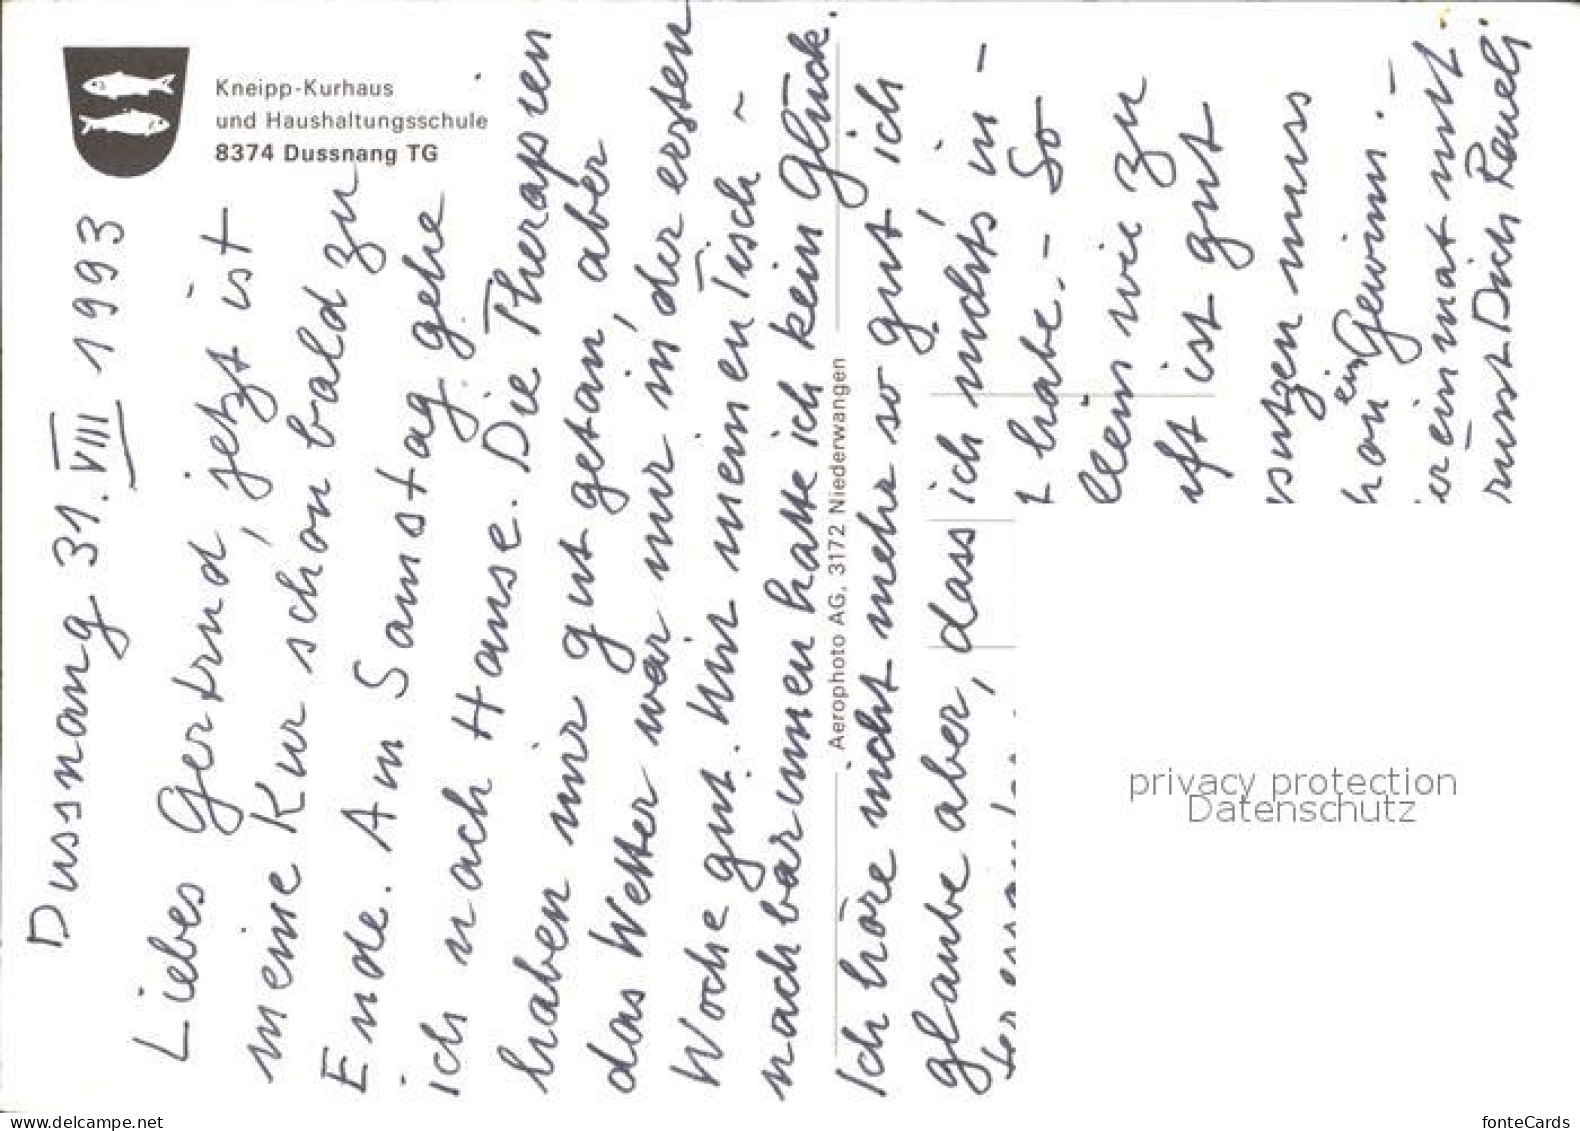 Kneipp-Kurhaus
und Haushaltungsschule
8374 Dussnang TG
Dussnang 31. VIII 1993
Liebes Gertrud, jetzt ist
meine Kur schon bald zu
Ende. Am Samstag gehe
ich nach Hause. Die Therapien
haben mir gut getan, aber
das Wetter war nur in der ersten
Woche gut. Mit meinen Tisch -
nachbarinnen hatte ich kein Glück.
Ich höre nicht mehr so gut ich
glaube aber, dass ich nichts in -
habe. - So
llein wie zu
ist gut
muss
ein Gewinn. -
einmal mit
Dich Rueli
Aerophoto AG, 3172 Niederwangen
privacy protection
Datenschutz
www.delcampe.net
fonteCards